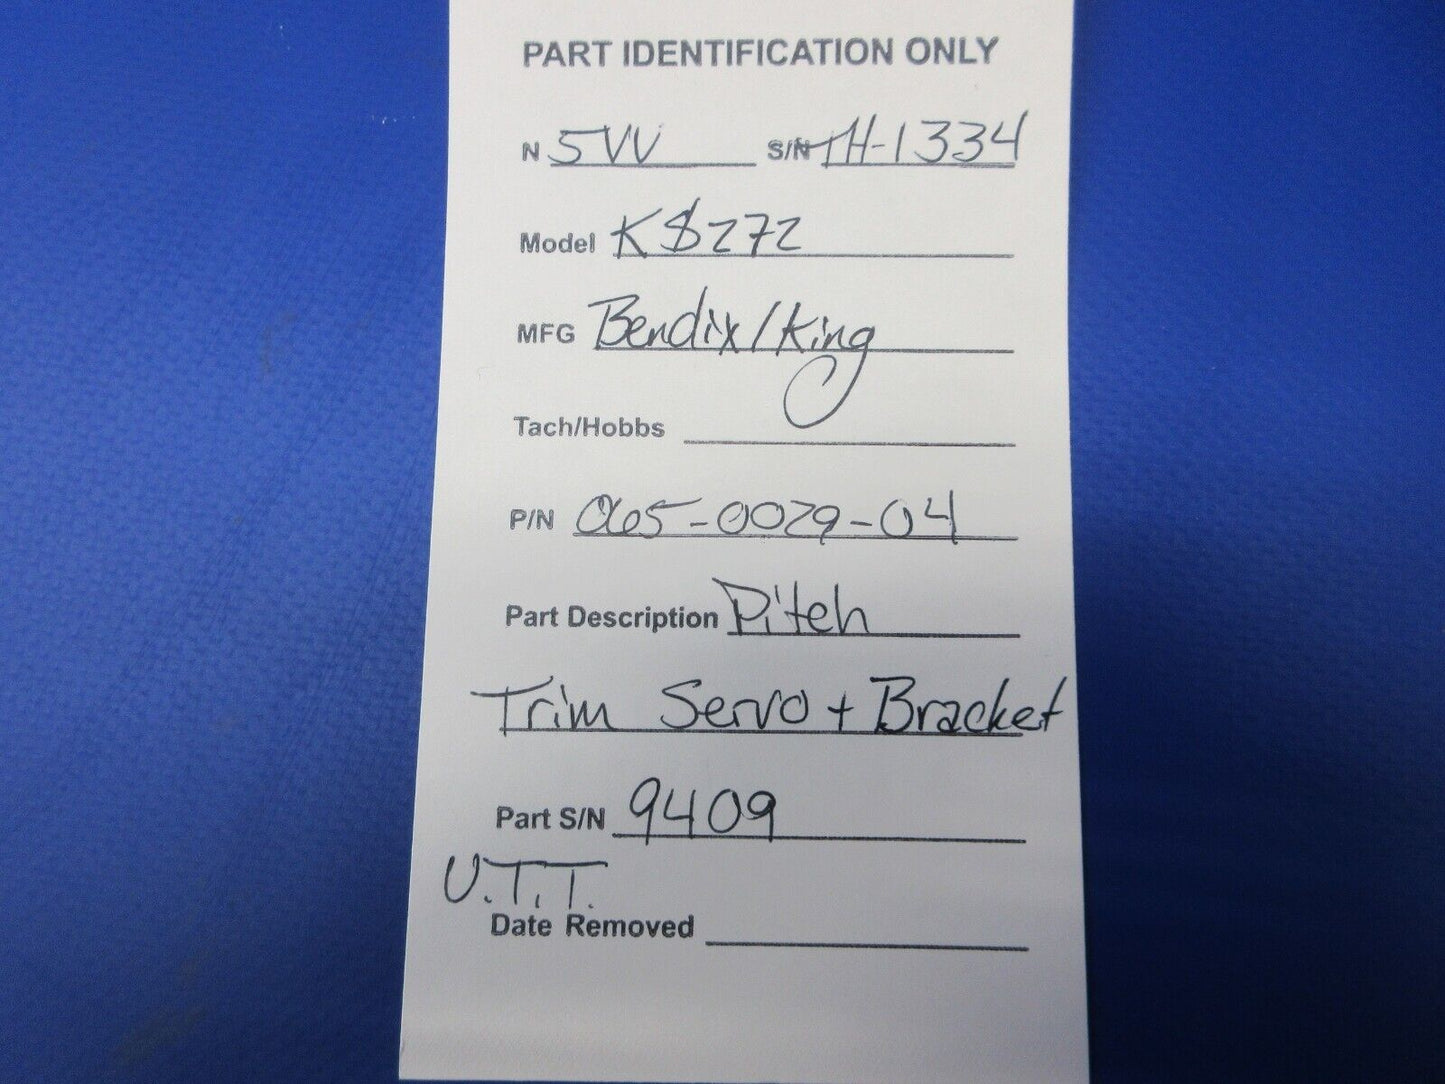 PART IDENTIFICATION ONLY
N 5VV S/N TH-1334
Model KS272
MFG Bendix/King
Tach/Hobbs
P/N 065-0029-04
Part Description Pitch
Trim Servo + Bracket
Part S/N 9409
U.T.T.
Date Removed